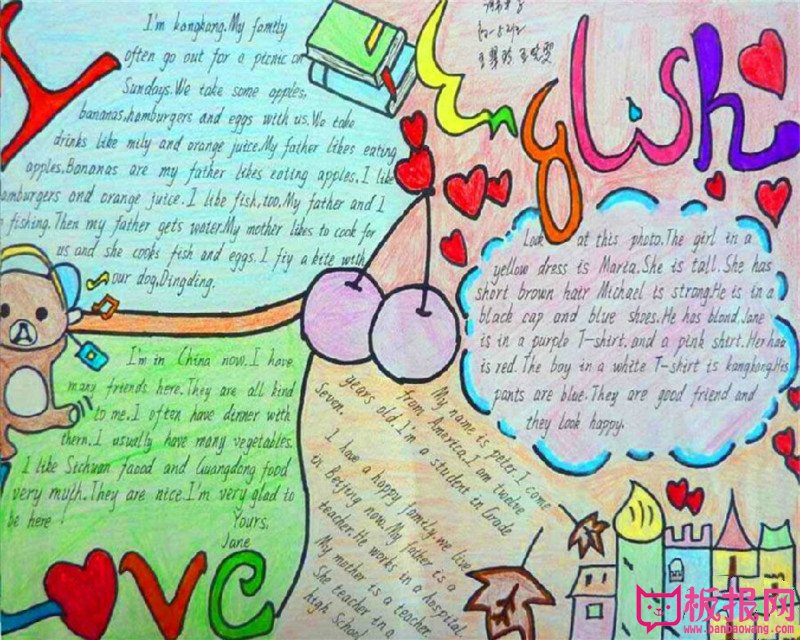 I'm kangkang.My family
often go out for a picnic on
Sundays.We take some apples,
bananas,hamburgers and eggs with us.We take
drinks like mily and orange juice.My father likes eating
apples.Bananas are my father likes eating apples.I like
hamburgers and orange juice.I like fish,too.My father and I
fishing.Then my father gets water.My mother likes to cook for
us and she cooks fish and eggs.I fiy a kite with
our dog,Dingding.
English
Look at this photo.The girl in a
yellow dress is Maria.She is tall.She has
short brown hair Michael is strong.He is in a
black cap and blue shoes.He has blond.Jane
is in a purple T-shirt.and a pink shirt.Her hair
is red.The boy in a white T-shirt is kangkang.His
pants are blue.They are good friend and
they look happy.
I'm in China now.I have
many friends here.They are all kind
to me.I often have dinner with
them.I usually have many vegetables.
I like Sichuan faood and Guangdong food
very myth.They are nice.I'm very glad to
be here
Yours,
Jane
My name is peter.I come
from America.I am twelve
years old.I'm a student in Grade
Seven.
I have a happy family.we live
in Beijing now.My father is a
teacher.He works in a hospital
My mother is a teacher.
She teacher in a
high School
板报网
www.banbaowang.com